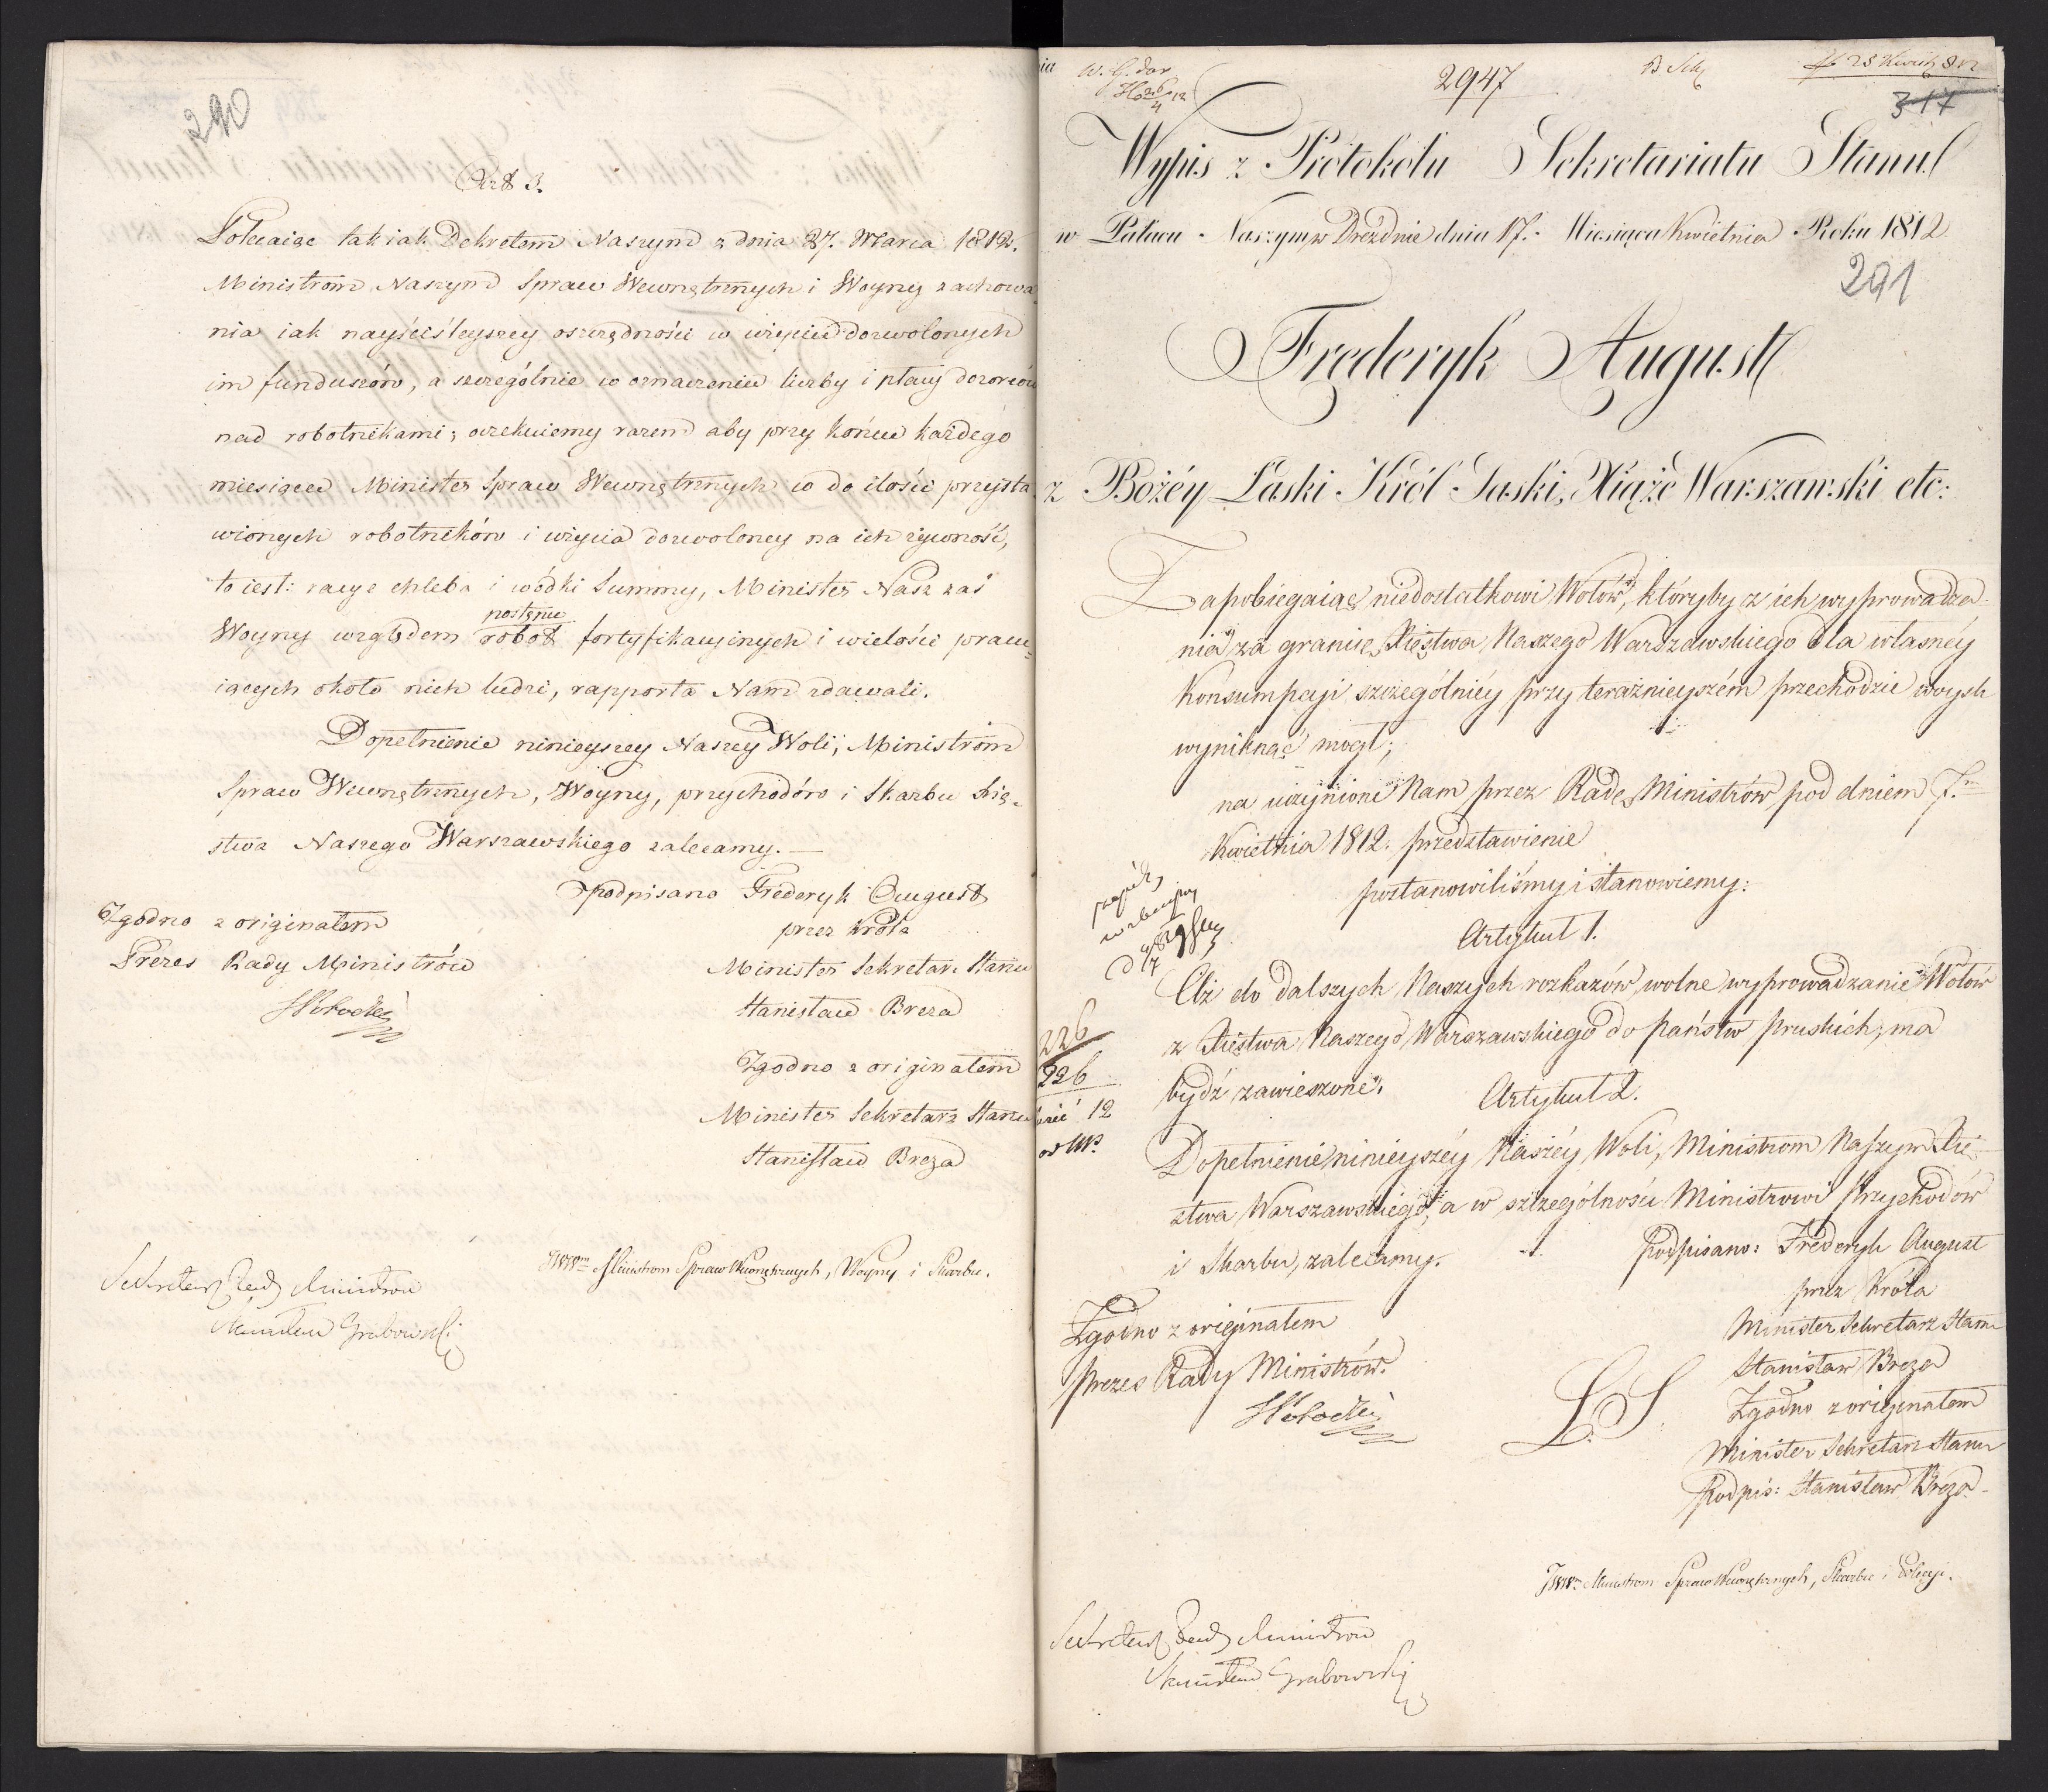 290
Art 3.
Polecaiąc tak iak Dekretem Naszym z dnia 27. Marca 1812.
Ministrom Naszym Spraw Wewnętrznych i Woyny zachowa
nia iak nayściśleyszey oszczędności w użyciu dozwolonych
im funduszów, a szczególnie w oznaczeniu liczby i płacy dozorców
nad robotnikami; oczekuiemy razem aby przy końcu każdego
miesiąca Minister Spraw Wewnętrznych co do ilości przysta
wionych robotników i użycia dozwoloney na ich żywność,
to iest: racye chleba i wódki Summy, Minister Nasz zaś
postępu
Woyny względem robot fortyfikacyinych i wielości pracu=
iących około nich ludzi, rapporta Nam zdawali.
Dopełnienie ninieyszey Naszey Woli, Ministrom
Spraw Wewnętrznych, Woyny, przychodów i Skarbu Xię-
stwa Naszego Warszawskiego zalecamy.—
podpisano Frederyk August
przez Króla
Minister Sekretarz Stanu
Stanisław Breza
Zgodno z originałem
Minister Sekretarz Stanu
Stanisław Breza
Zgodno z originałem
Prezes Rady Ministrów
JWWm Ministrom Spraw Wewnętrznych, Woyny i Skarbu.
Sekretarz Rady Ministrow
Stanisław Grabowski
2947
317
Wypis z Protokółu Sekretariatu Stanu
w Pałacu Naszym w Dreźdnie dnia 17. Miesiąca Kwietnia Roku 1812
291
Frederyk August
z Bożéy Łaski Król Saski, Xiążę Warszawski etc:
Zapobiegaiąc niedostatkowi Wołów, któryby z ich wyprowadze-
nia za granicę Xięstwa Naszego Warszawskiego dla własnéy
Konsumpcyi szczególniéy przy teraźnieyszém przechodzie woysk
wyniknąć mógł;
na uczynione Nam przez Radę Ministrów pod dniem 7.
Kwietnia 1812. przedstawienie
postanowiliśmy i stanowiemy:
Artykuł 1.
Aż do dalszych Naszych rozkazów, wolne wyprowadzanie Wołów
z Xięstwa Naszego Warszawskiego do państw pruskich, ma
bydź zawieszone.
Artykuł 2.
Dopełnienie ninieyszéy Naszéy Woli, Ministrom Naszym Xię-
stwa Warszawskiego, a w szczególności Ministrowi Przychodów
i Skarbu, zalecamy.
podpisano: Frederyk August
przez Króla
Minister Sekretarz Stanu
Stanisław Breza
Zgodno z originałem
Minister Sekretarz Stanu
Podpis: Stanisław Breza
L. S.
Zgodno z originałem
prezes Rady Ministrów.
226
226
12
JWWm Ministrom Spraw Wewnętrznych, Skarbu i Policyi.
Sekretarz Rady Ministrow
Stanisław Grabowski